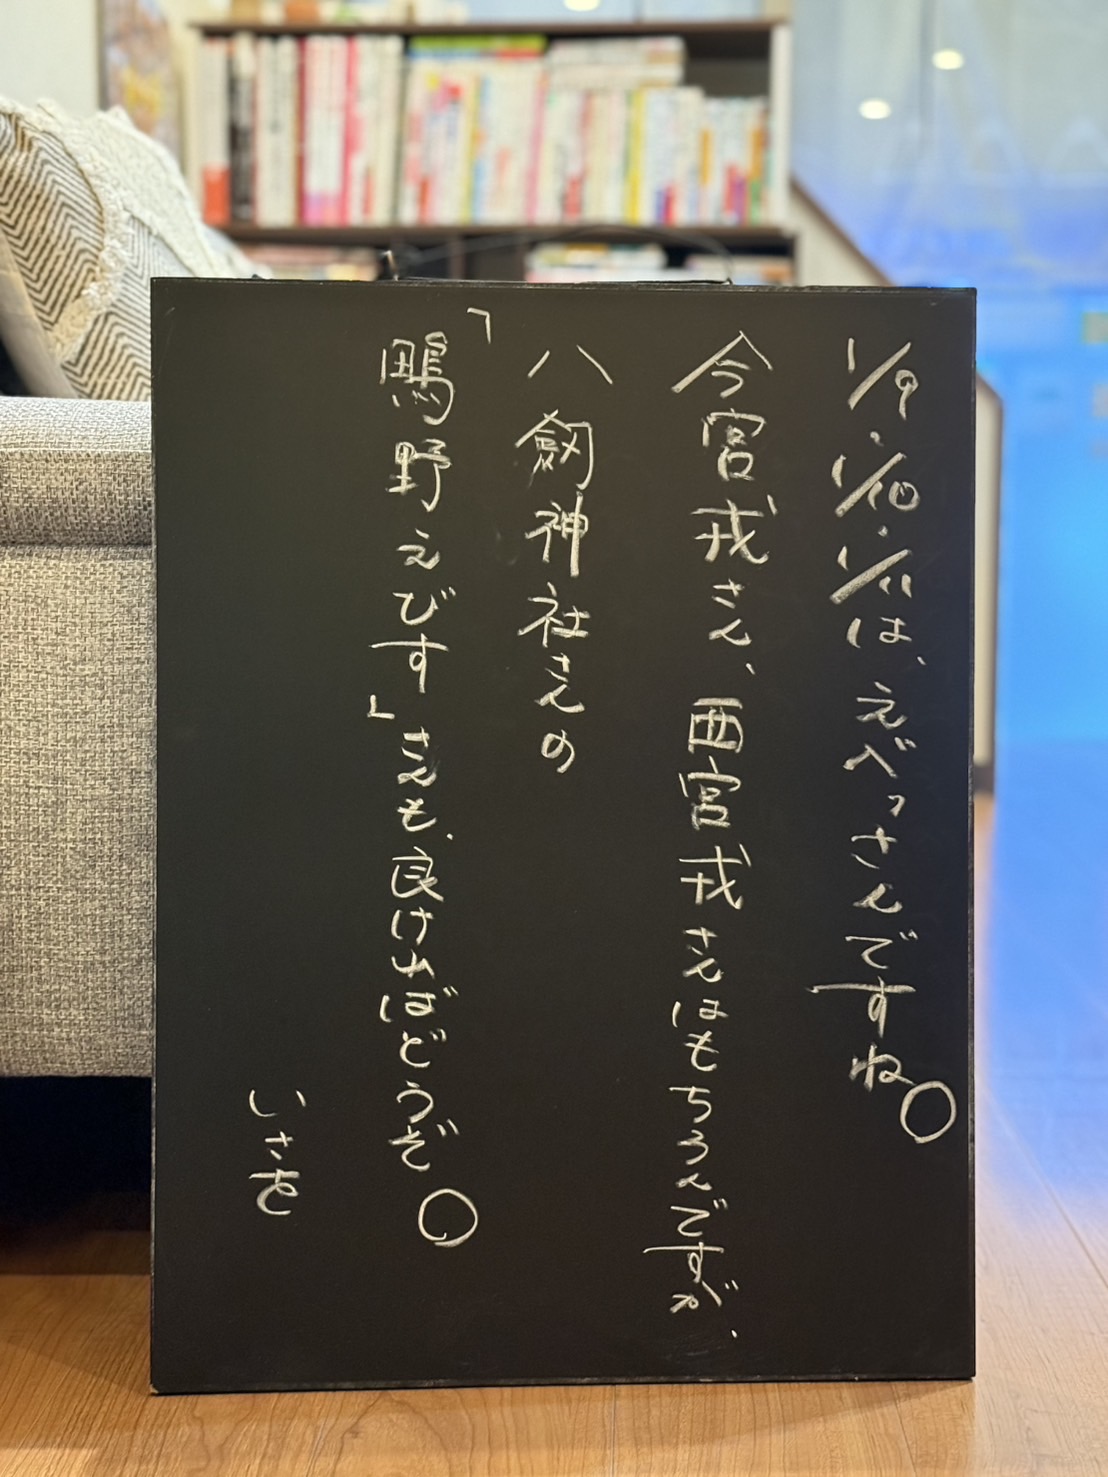 1/9・1/10・1/11は、えべっさんですね○
今宮戎さん、西宮戎さんはもちろんですが、
八劔神社さんの
「鴫野えびす」さんも、良ければどうぞ○
いさを